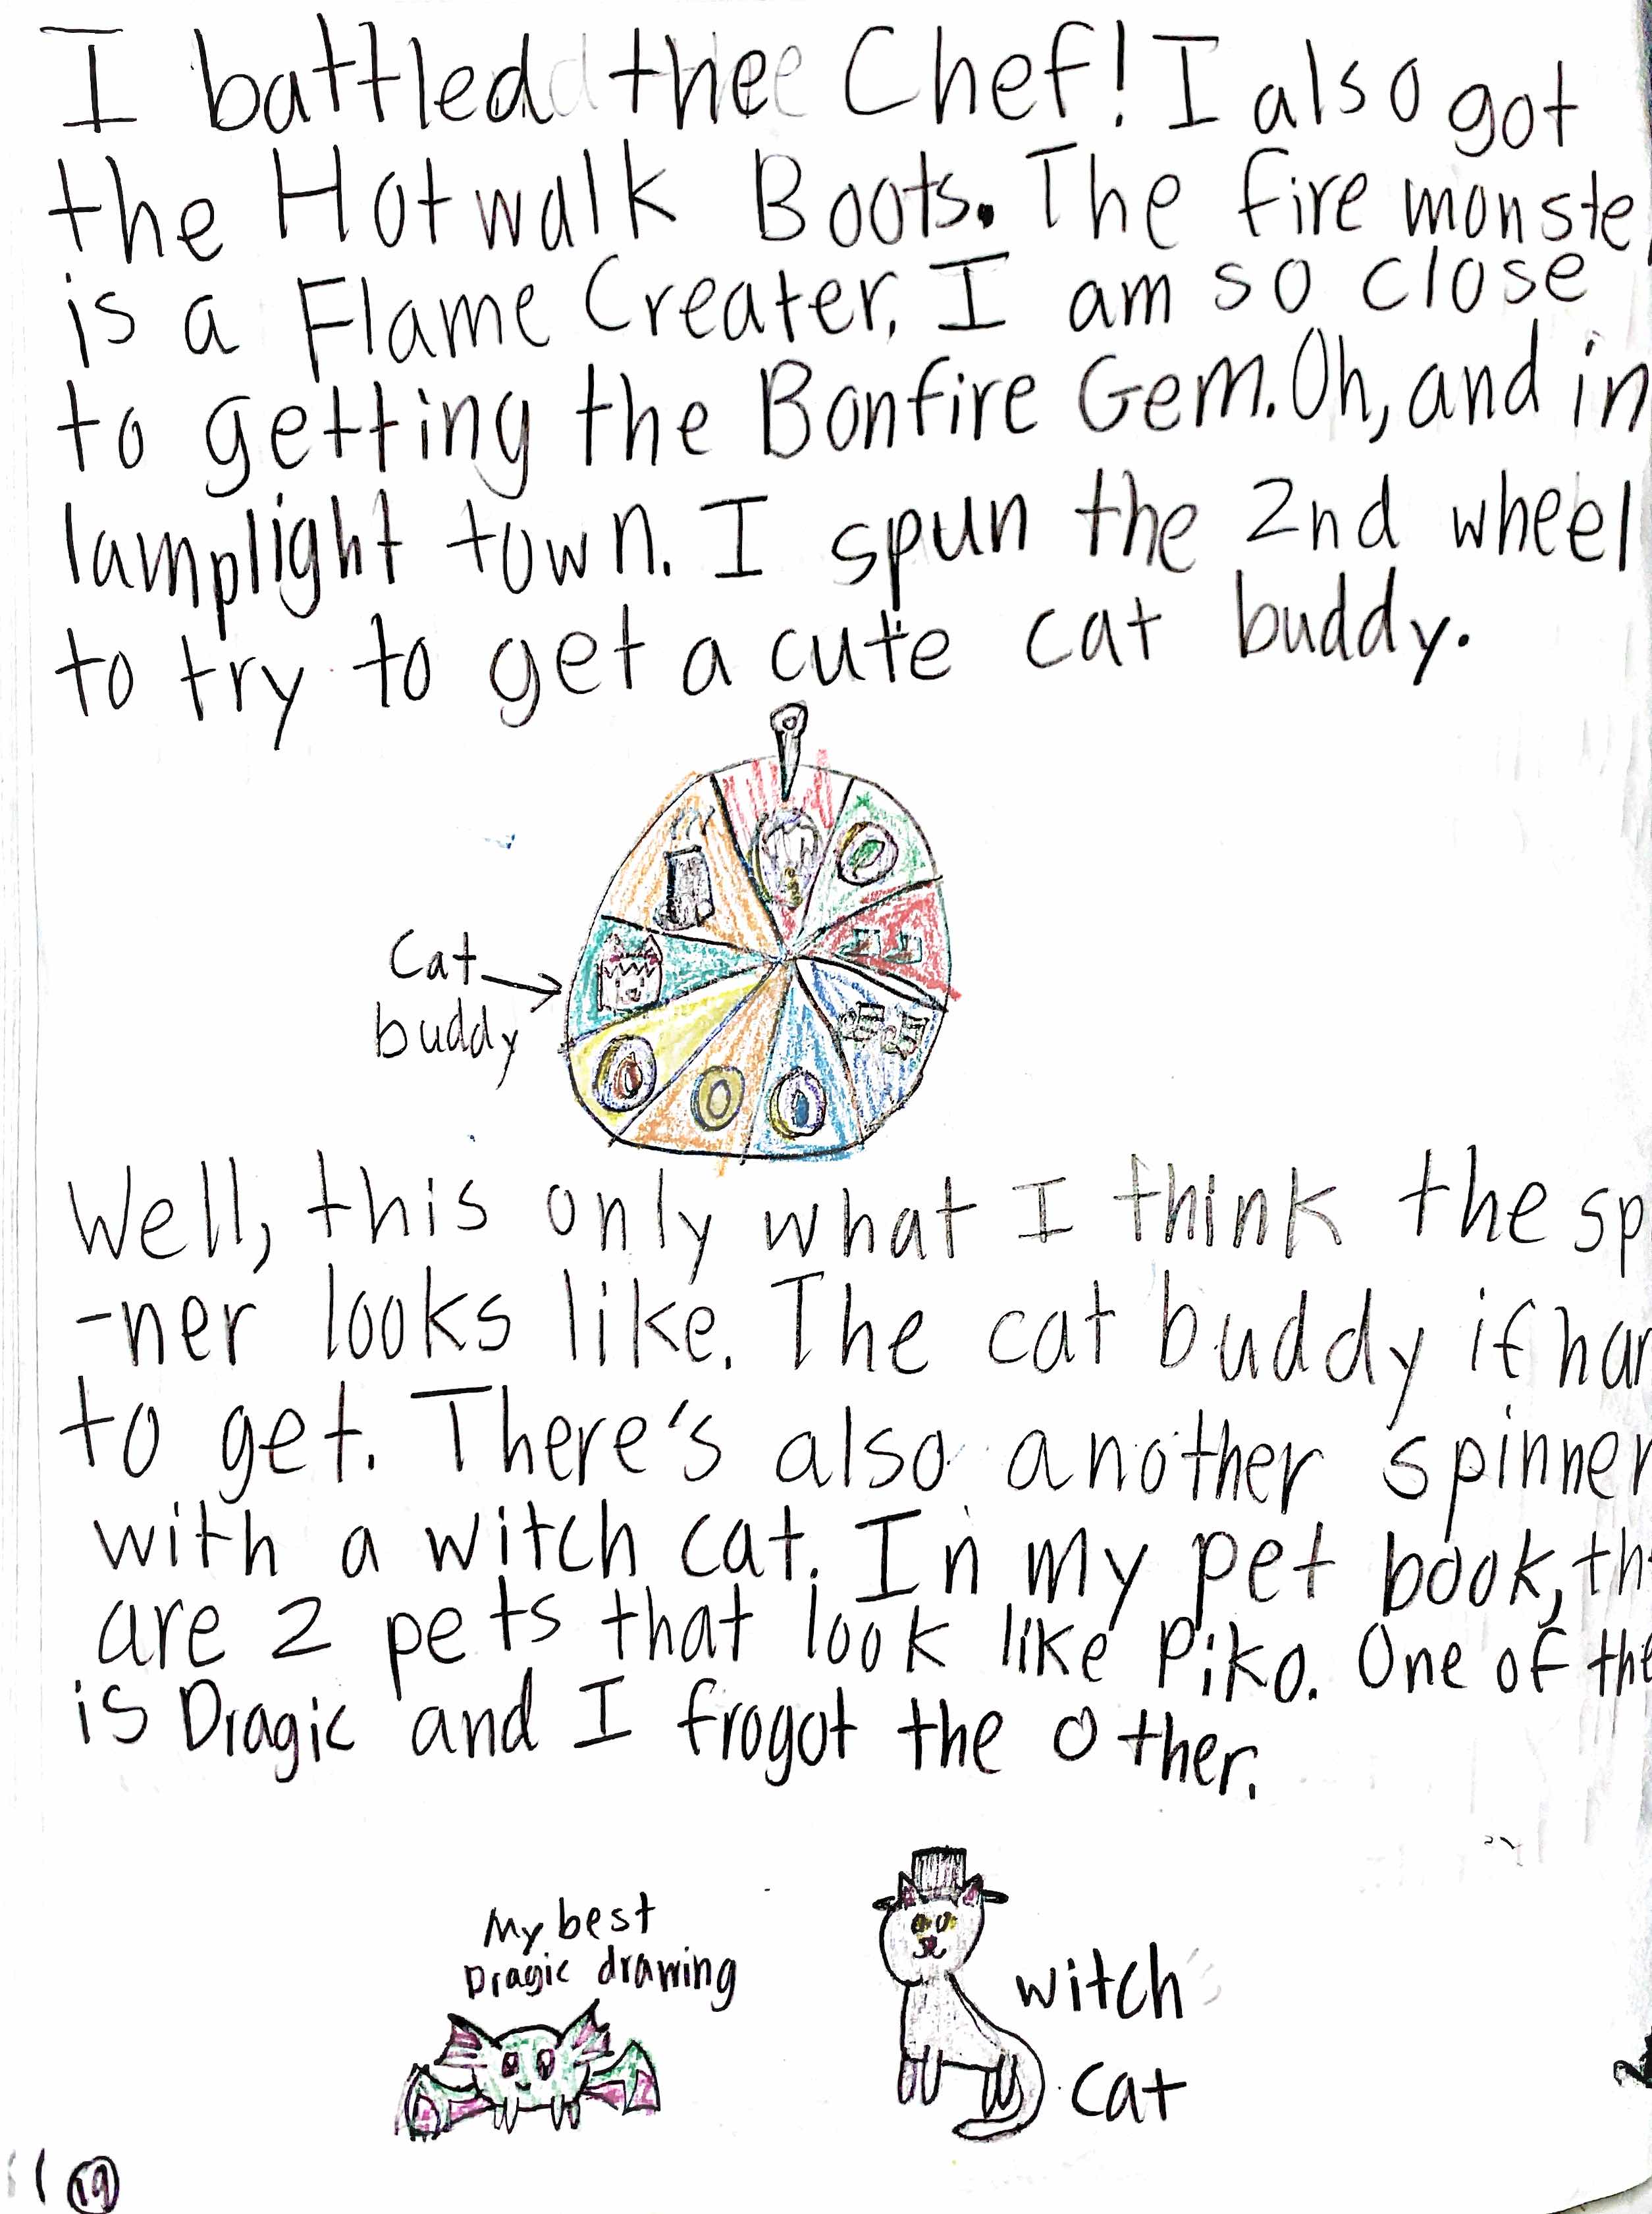 I battled the Chef! I also got
the Hotwalk Boots. The fire monste
is a Flame Creater. I am so close
to getting the Bonfire Gem. Oh, and in
lamplight town. I spun the 2nd wheel
to try to get a cute cat buddy.
Cat
buddy
Well, this only what I think the sp
-ner looks like. The cat buddy if har
to get. There's also another spinner
with a witch cat. In my pet book, th
are 2 pets that look like Piko. One of the
is Dragic and I frogot the other.
My best
Dragic drawing
witch
cat
19